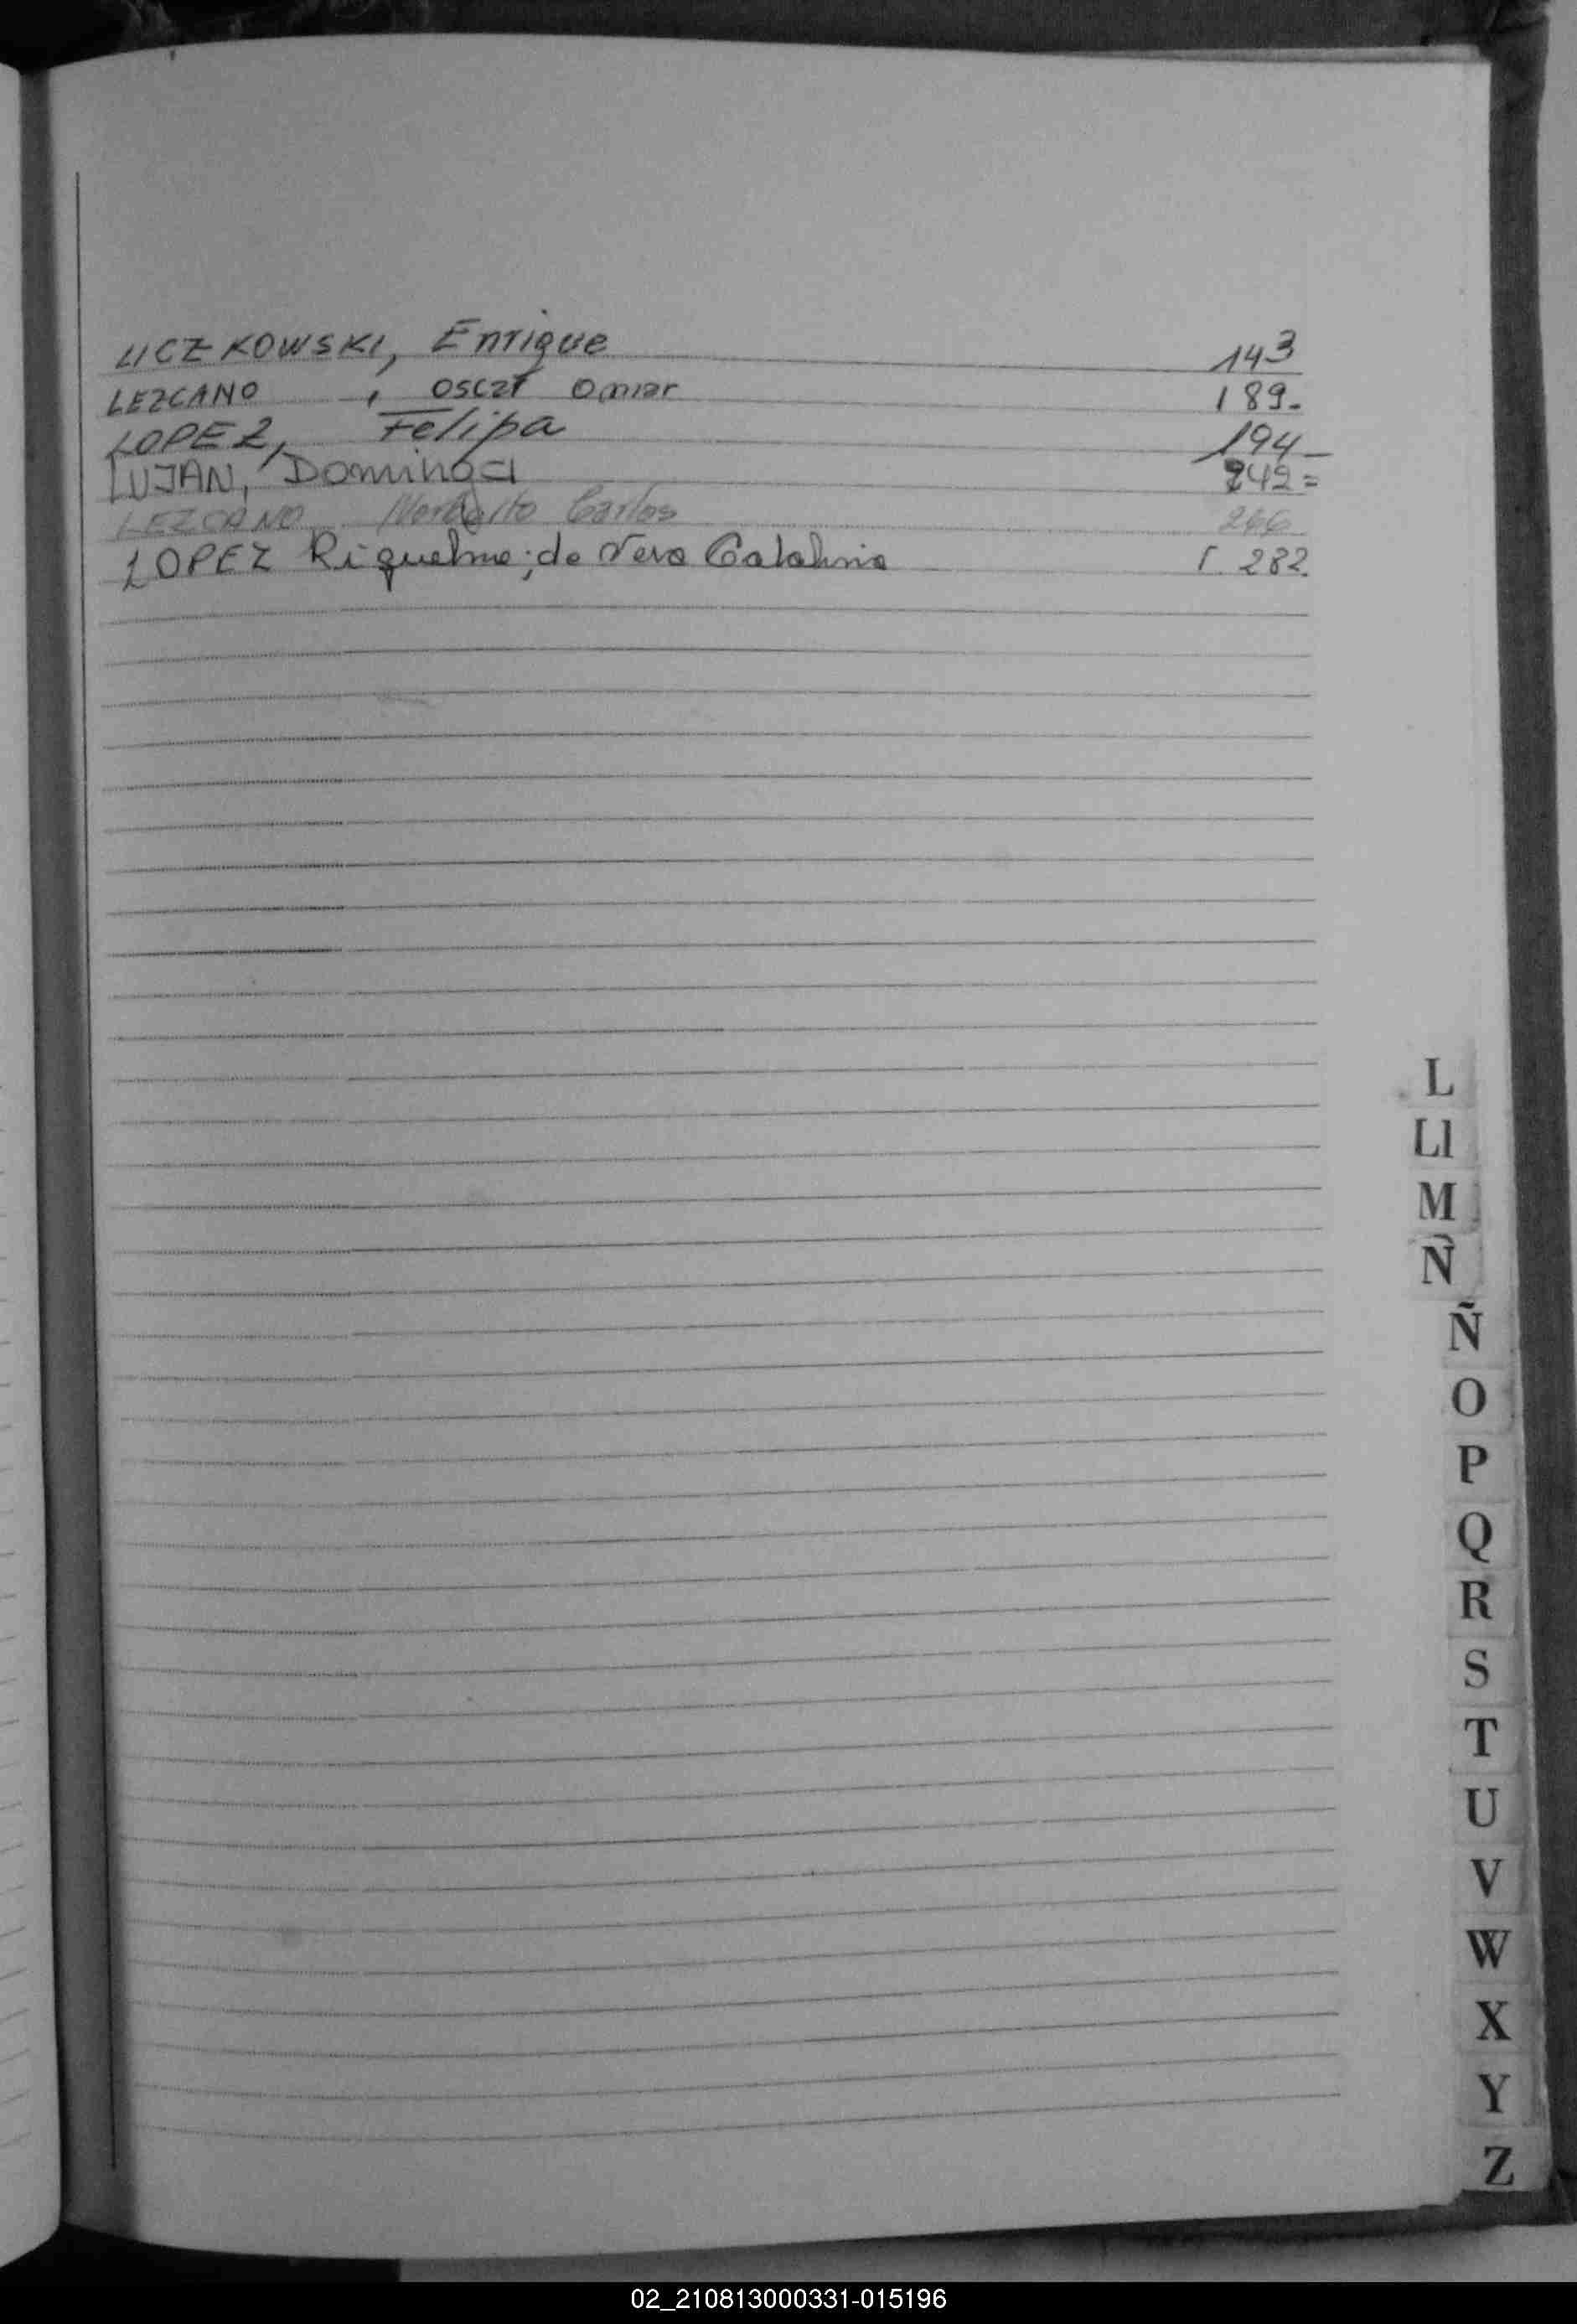 LICZKOWSKI, Enrique 143
LEZCANO , Oscar Omar 189-
LOPEZ, Felipa 194-
LUJAN, Dominga 242=
LEZCANO Norberto Carlos 266
LOPEZ Riquelme; de Vera Catalina 282
L
Ll
M
N
Ñ
O
P
Q
R
S
T
U
V
W
X
Y
Z
02_210813000331-015196